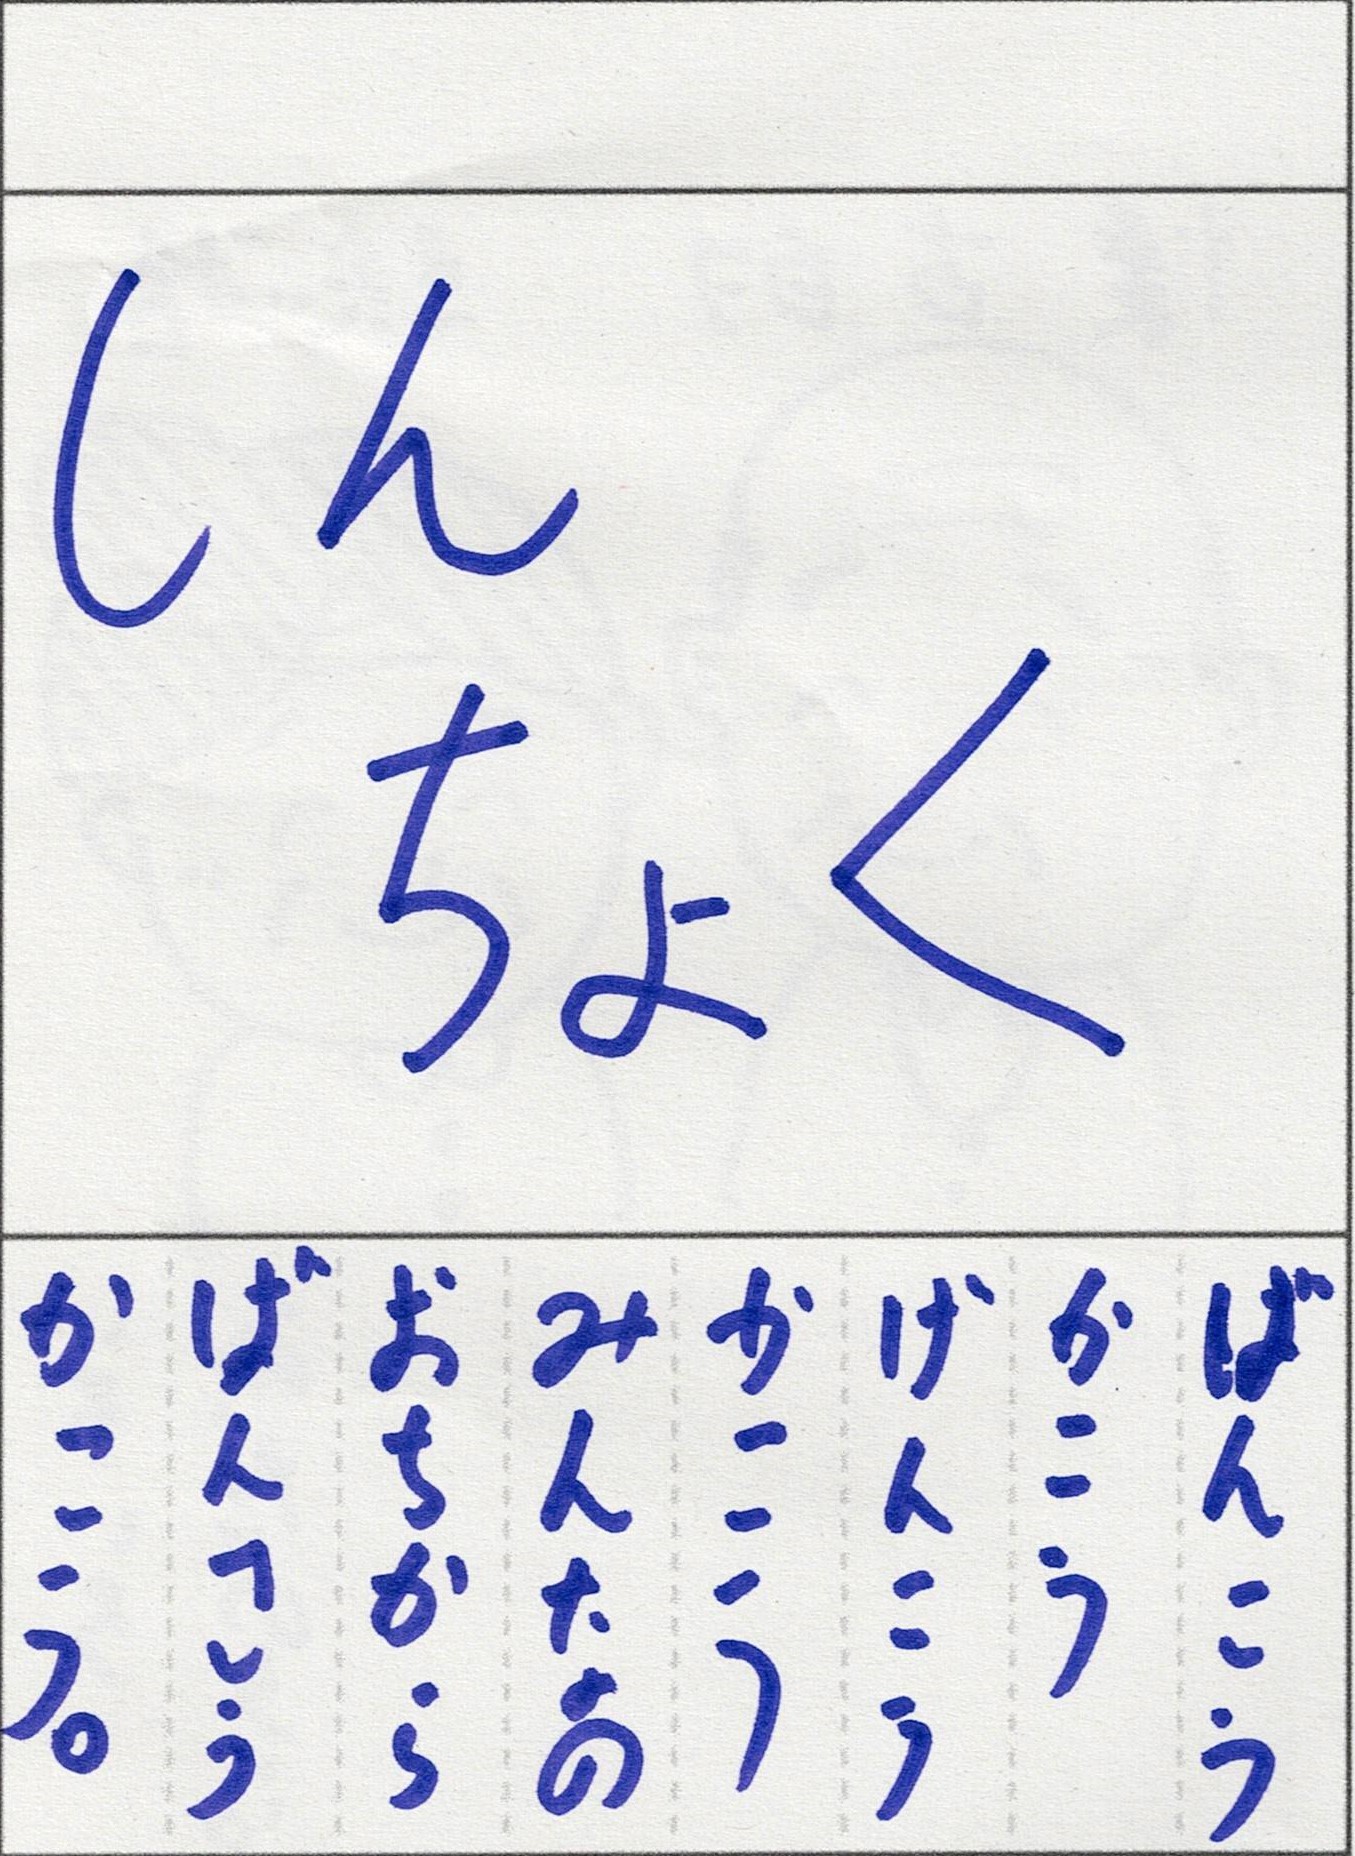 しん
ちょく
ばんこう
かこう
げんこう
かこう
みんなの
おちから
ばんこう
かこう。